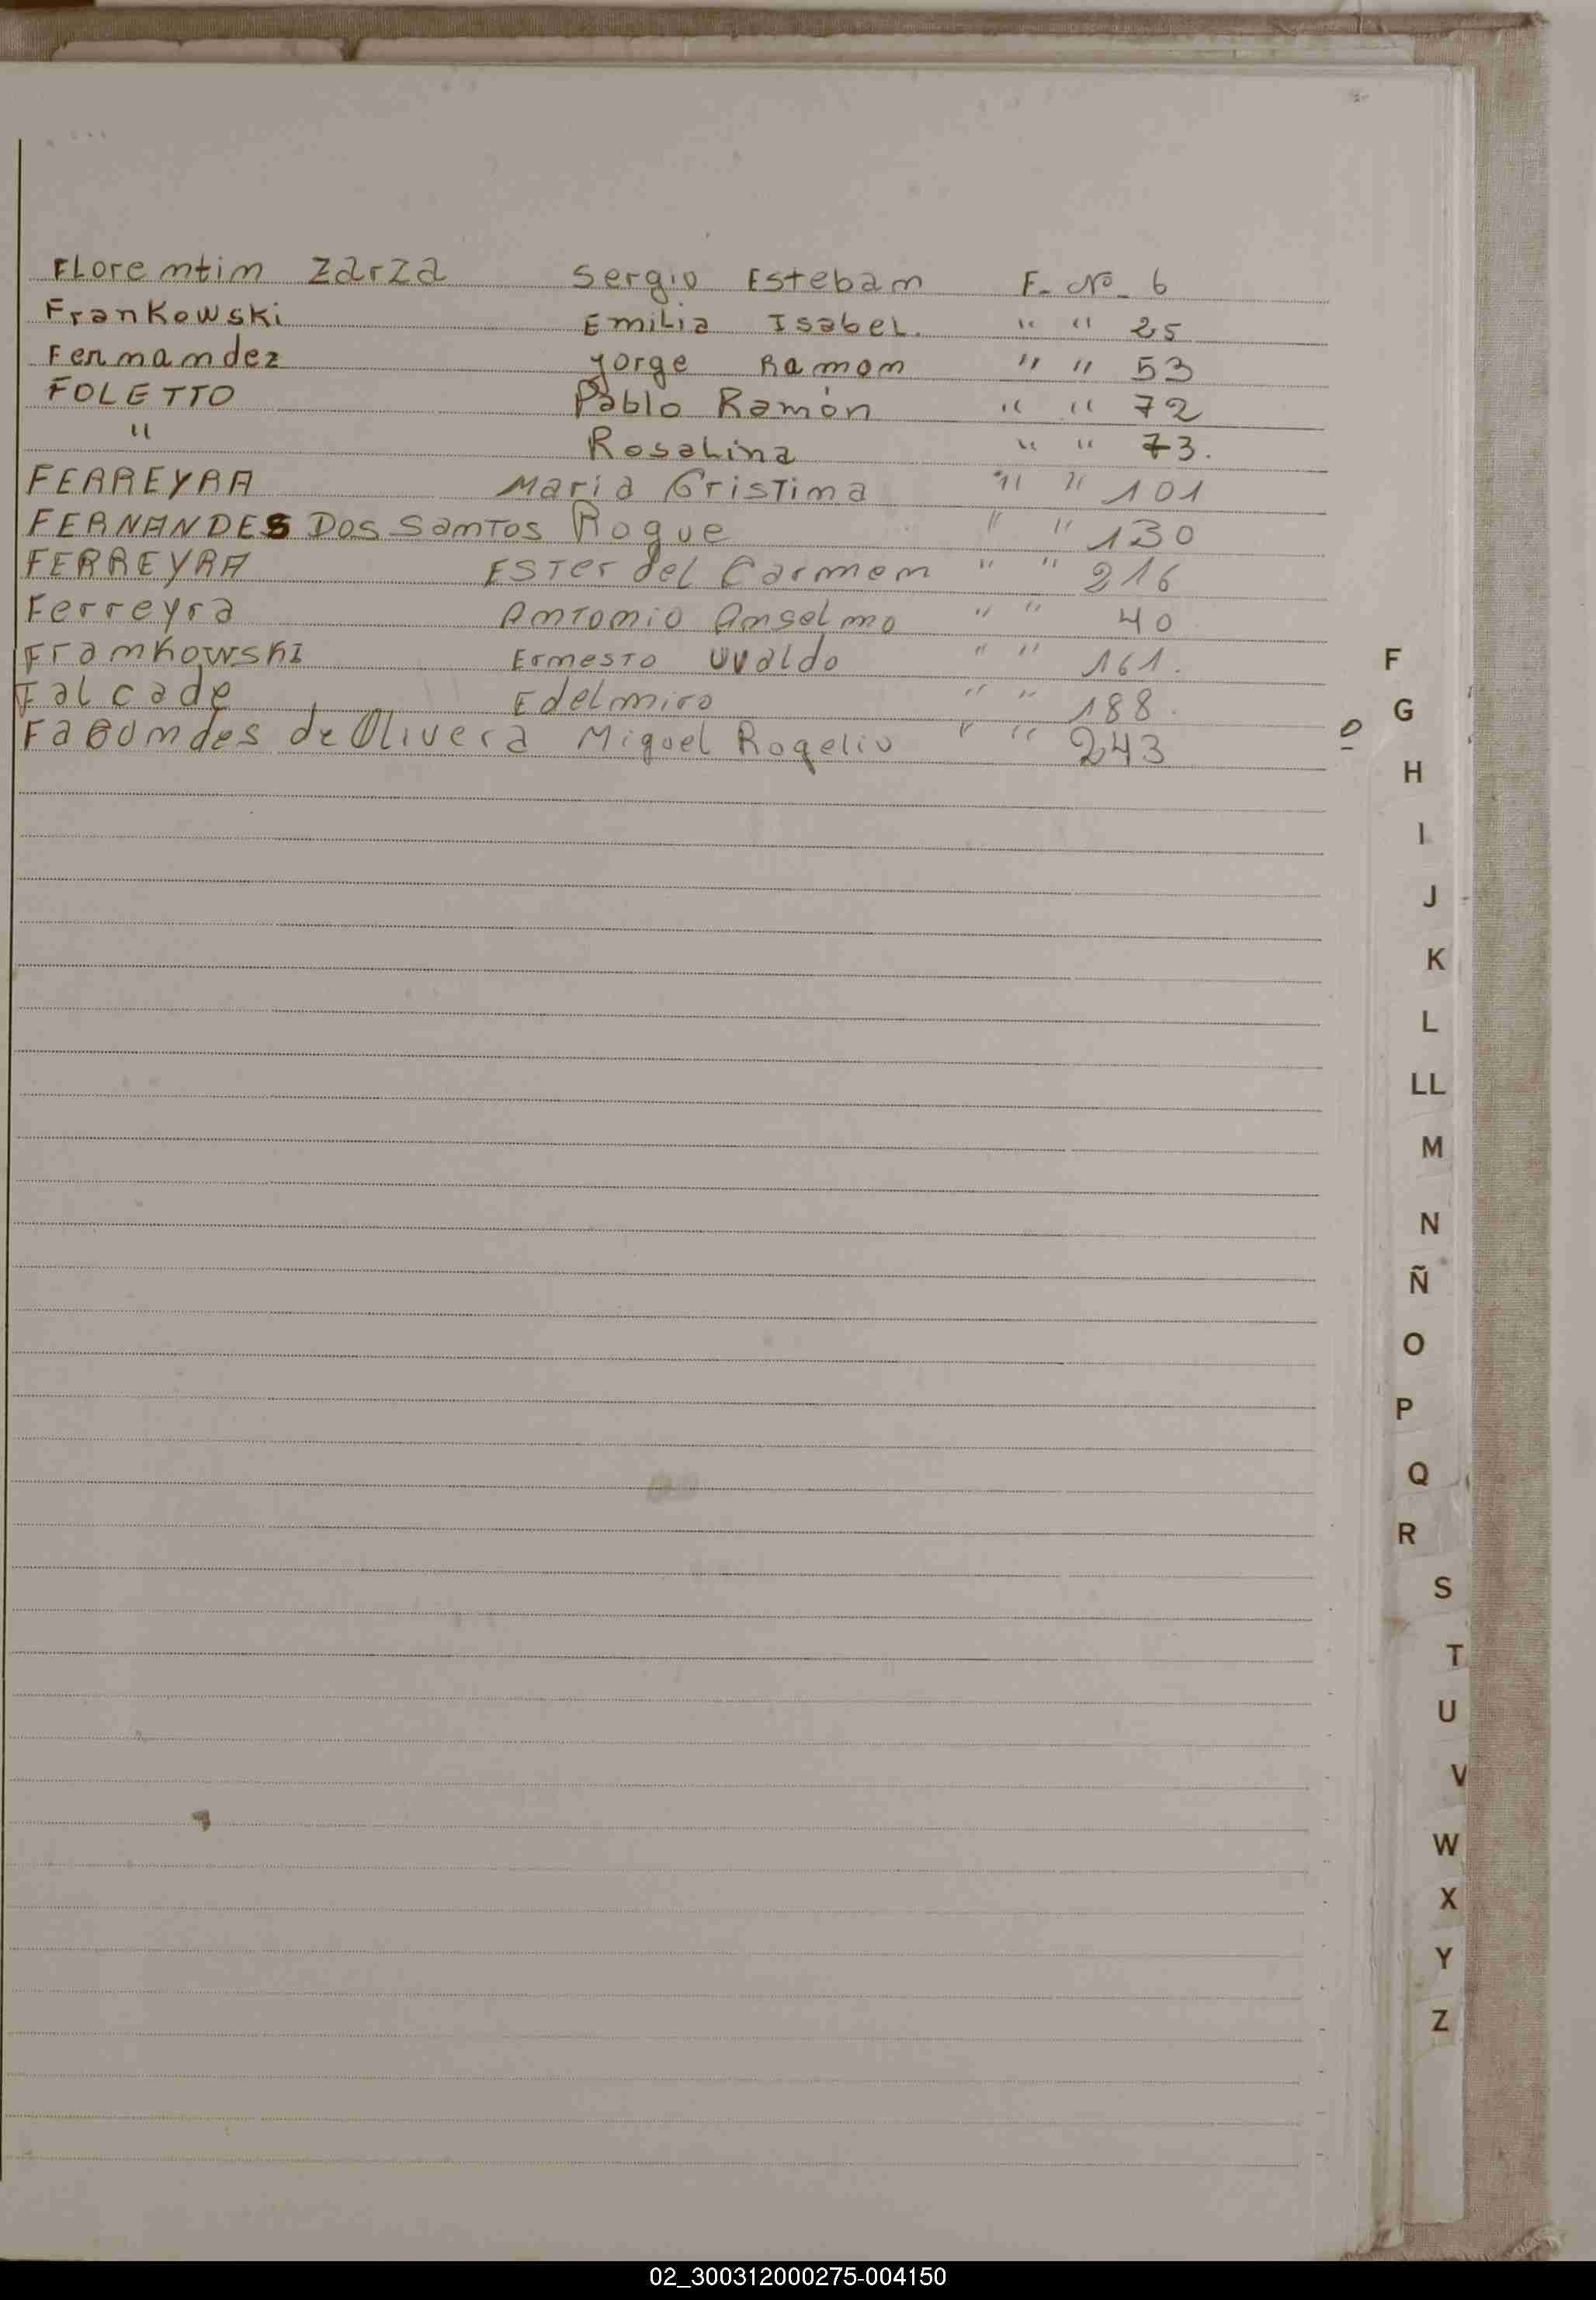 Florentin Zarza Sergio Esteban F. Nº 6
Frankowski Emilia Isabel. " " 25
Fernandez Jorge Ramon " " 53
FOLETTO Pablo Ramón " " 72
" Rosalina " " 73.
FERREYRA Maria Cristina " " 101
FERNANDES Dos Santos Roque " " 130
FERREYRA Ester del Carmen " " 216
Ferreyra Antonio Anselmo " " 40
Frankowski Ernesto Uvaldo " " 161.
Falcade Edelmiro " " 188.
Fagundes de Olivera Miguel Rogelio " " 243
F
G
H
I
J
K
L
LL
M
N
Ñ
O
P
Q
R
S
T
U
V
W
X
Y
Z
02_300312000275-004150